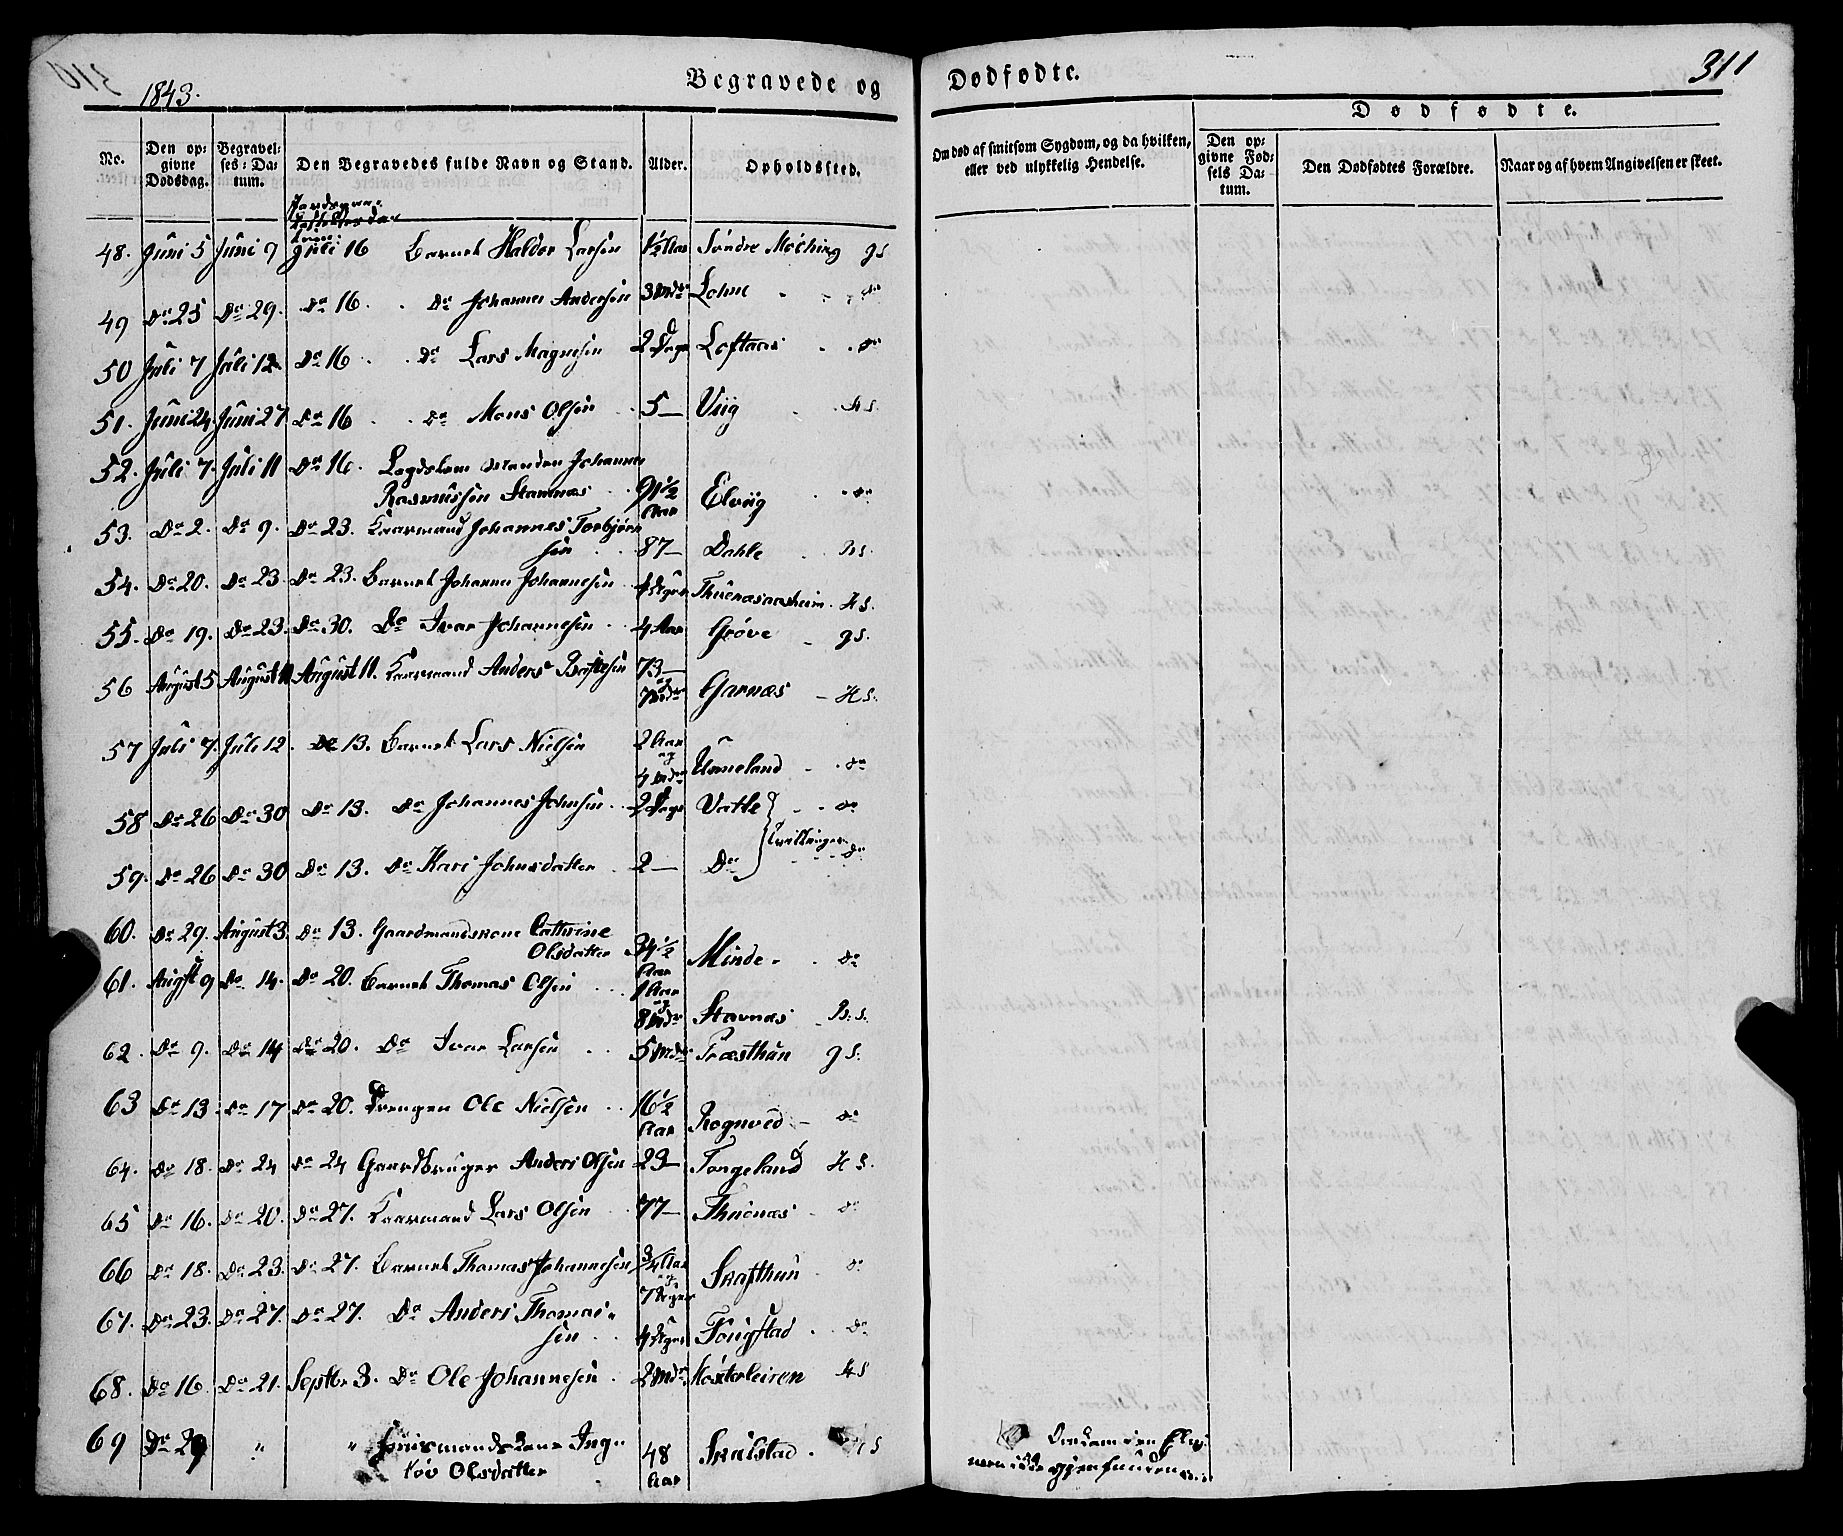 1843.
Begravede og
Dødfødte.
311
No.
Den op-
givne
Dødsdag.
Begravel-
ses: Da-
tum.
Den Begravedes fulde Navn og Stand.
Alder.
Opholdssted.
Om død af smitsom Sygdom, og da hvilken,
eller ved ulykkelig Hendelse.
Dødfødte.
Den op-
givne Fød-
sels Da-
tum.
Den Dødfødtes Forældre.
Naar og af hvem Angivelsen er skeet.
48. Juni 5 Juni 9 Juli 16 Barnet Haldor Larsen 1½ Aar Søndre gs
49 Do 25 Do 29. Do 16. Do Johannes Andersen 3 Mdr Lohne Do
50 Juli 7 Juli 12 Do 16 Do Lars Magnesen 2 Dage Loftaas Do
51. Juni 24. Juni 27 Do 16 Do Mons Olsen 5 — Viig Hs.
52. Juli 7. Juli 11 Do 16. Lægdslem Manden Johannes
Rasmussen Stamnes 91½ Aar Elviig Do
53. Do 2. Do 9. Do 23. Kaarmand Johannes Torbjørn
sen 87 — Dahle Hs.
54. Do 20. Do 23 Do 23. Barnet Johannes Johannesen 4 Uger Hs.
55. Do 19. Do 23. Do 30. Do Ivar Johannesen 4 Aar Grøve gs.
56 August 5 August 11 August 11. Kaarmand Anders 73 —
og
7 Mdr Garnæs Hs.
57 Juli 7. Juli 12. Do 13. Barnet Lars Nielsen 2 Aar
og
4 Mdr Unneland Do
58 Do 26 Do 30 Do 13. Do Johannes Johnsen 2 Dage Vatle Do
Tvillinger
59. Do 26 Do 30 Do 13. Do Kari Johnsdatter 2 — Do Do
60. Do 29. August 3. Do 13. Gaardmandskone Cathrine
Olsdatter 34½
Aar Minde Do
61. Augst 9 Do 14. Do 20. Barnet Thomas Olsen 1 Aar
og
8 Mdr Stavnæs Hs.
62. Do 9. Do 14 Do 20. Do Ivar Larsen 5 Mdr Præsthun gs.
63 Do 13 Do 17 Do 20. Drengen Ole Nielsen 16½
Aar Rognved Do
64. Do 18. Do 24 Do 24 Gaardbruger Anders Olsen 23 — Torgeland Hs.
65 Do 16. Do 20. Do 27. Kaarmand Lars Olsen 77 — Thuenæs Do
66 Do 18. Do 23. Do 27. Barnet Thomas Johannesen ¾ Aar
og
7 Uger Skafthun Do
67. Do 23. Do 27. Do 27. Do Anders Thomas-
sen 4 Uger Do
68. Do 16. Do 21. Septbr 3. Do Ole Johannesen 2 Mdr Hs
69 Do 29 " " Huusmandskone Inge-
Olsdatter 48
Aar Skulstad Hs